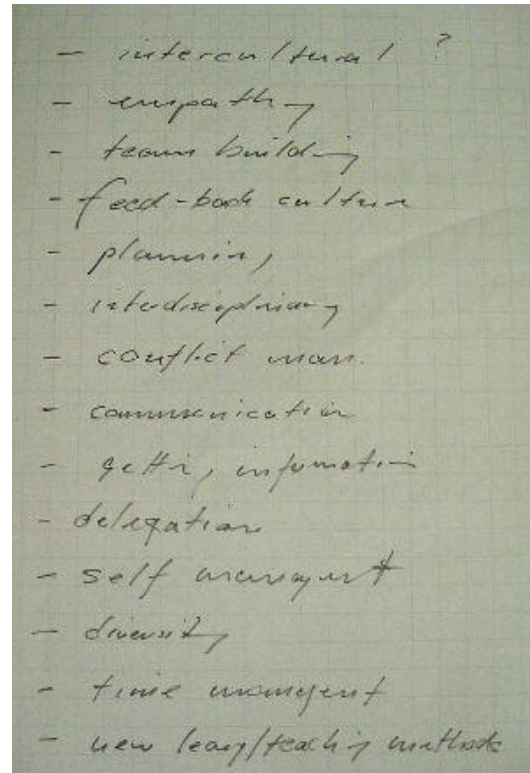 - intercultural ?
- empathy
- team building
- feed-back culture
- planning
- interdisciplinary
- conflict man.
- communication
- getting information
- delegation
- self management
- diversity
- time management
- new learn/teaching methods